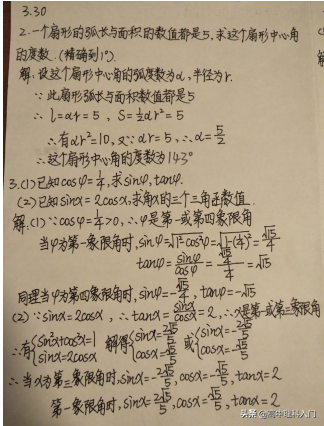 3.30
2.一个扇形的弧长与面积的数值都是5,求这个扇形中心角
的度数.(精确到1°).
解:设这个扇形中心角的弧度数为α,半径为r.
∵此扇形弧长与面积数值都是5
∴ l=αr=5 , S=½αr²=5
∴有αr²=10,又∵αr=5,∴α=5/2
∴这个扇形中心角的度数为143°
3.(1)已知cosφ=¼,求sinφ,tanφ.
(2)已知sinx=2cosx,求角x的三个三角函数值.
解:(1)∵cosφ=¼>0,∴φ是第一或第四象限角
当φ为第一象限角时,sinφ=√(1²-cos²φ)=√(1-(¼)²)=√15/4
tanφ=sinφ/cosφ=(√15/4)/(1/4)=√15
同理当φ为第四象限角时,sinφ=-√15/4,tanφ=-√15
(2)∵sinx=2cosx,∴tanx=sinx/cosx=2,∴x是第一或第三象限角
∴有{sin²x+cos²x=1 解得{sinx=2√5/5 或{sinx=-2√5/5
sinx=2cosx cosx=√5/5 cosx=-√5/5
∴当x为第三象限角时,sinx=-2√5/5,cosx=-√5/5,tanx=2
第一象限角时,sinx=2√5/5,cosx=√5/5,tanx=2
头条@高中理科入门